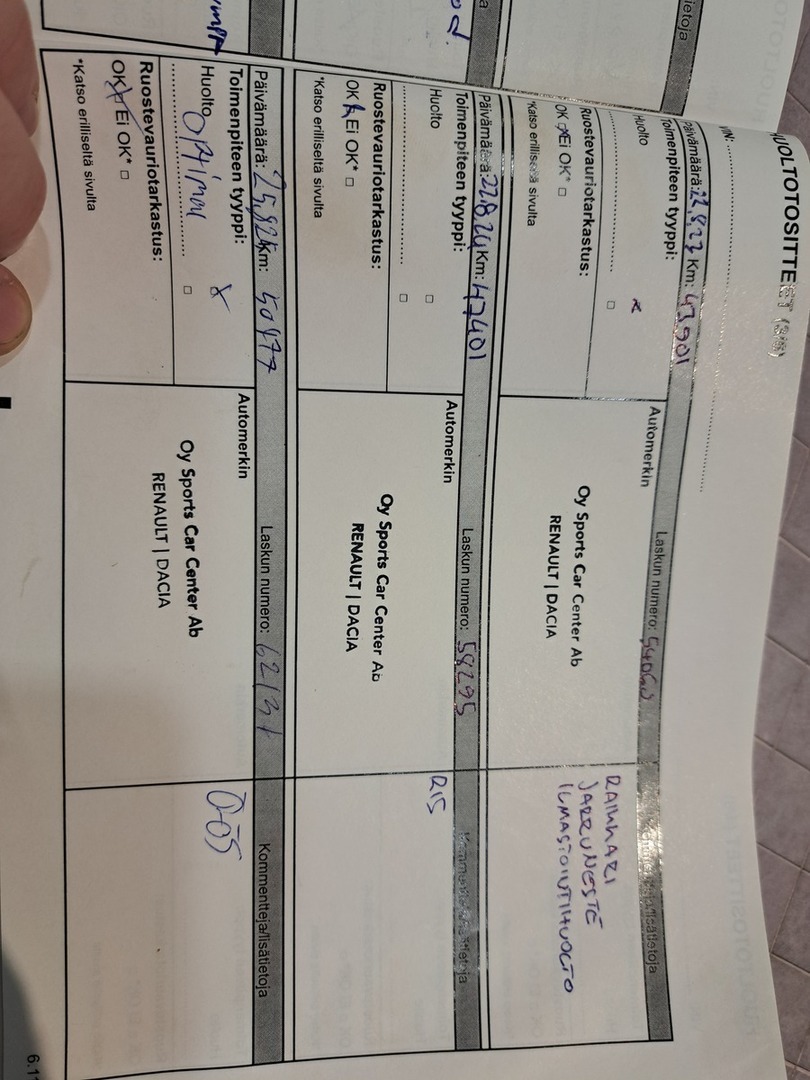 HUOLTOTOSITTEET (3/5)
VIN:
Päivämäärä: 22.8.23 Km: 43901
Laskun numero:
Kommentteja/lisätietoja
Toimenpiteen tyyppi:
Huolto x
Ruostevauriotarkastus:
OK x Ei OK* □
*Katso erilliseltä sivulta
Automerkin
Oy Sports Car Center Ab
RENAULT | DACIA
RAIKKARI
JARRUNESTE
ILMASTOINTIHUOLTO
Päivämäärä: 22.8.24 Km: 47401
Laskun numero: 58295
Kommentteja/lisätietoja
Toimenpiteen tyyppi:
Huolto □
□
Ruostevauriotarkastus:
OK Ei OK* □
*Katso erilliseltä sivulta
Automerkin
Oy Sports Car Center Ab
RENAULT | DACIA
R15
Päivämäärä: 25.8.25 Km: 50477
Laskun numero:
Kommentteja/lisätietoja
Toimenpiteen tyyppi:
Huolto x
Optimal □
Ruostevauriotarkastus:
OK x Ei OK* □
*Katso erilliseltä sivulta
Automerkin
Oy Sports Car Center Ab
RENAULT | DACIA